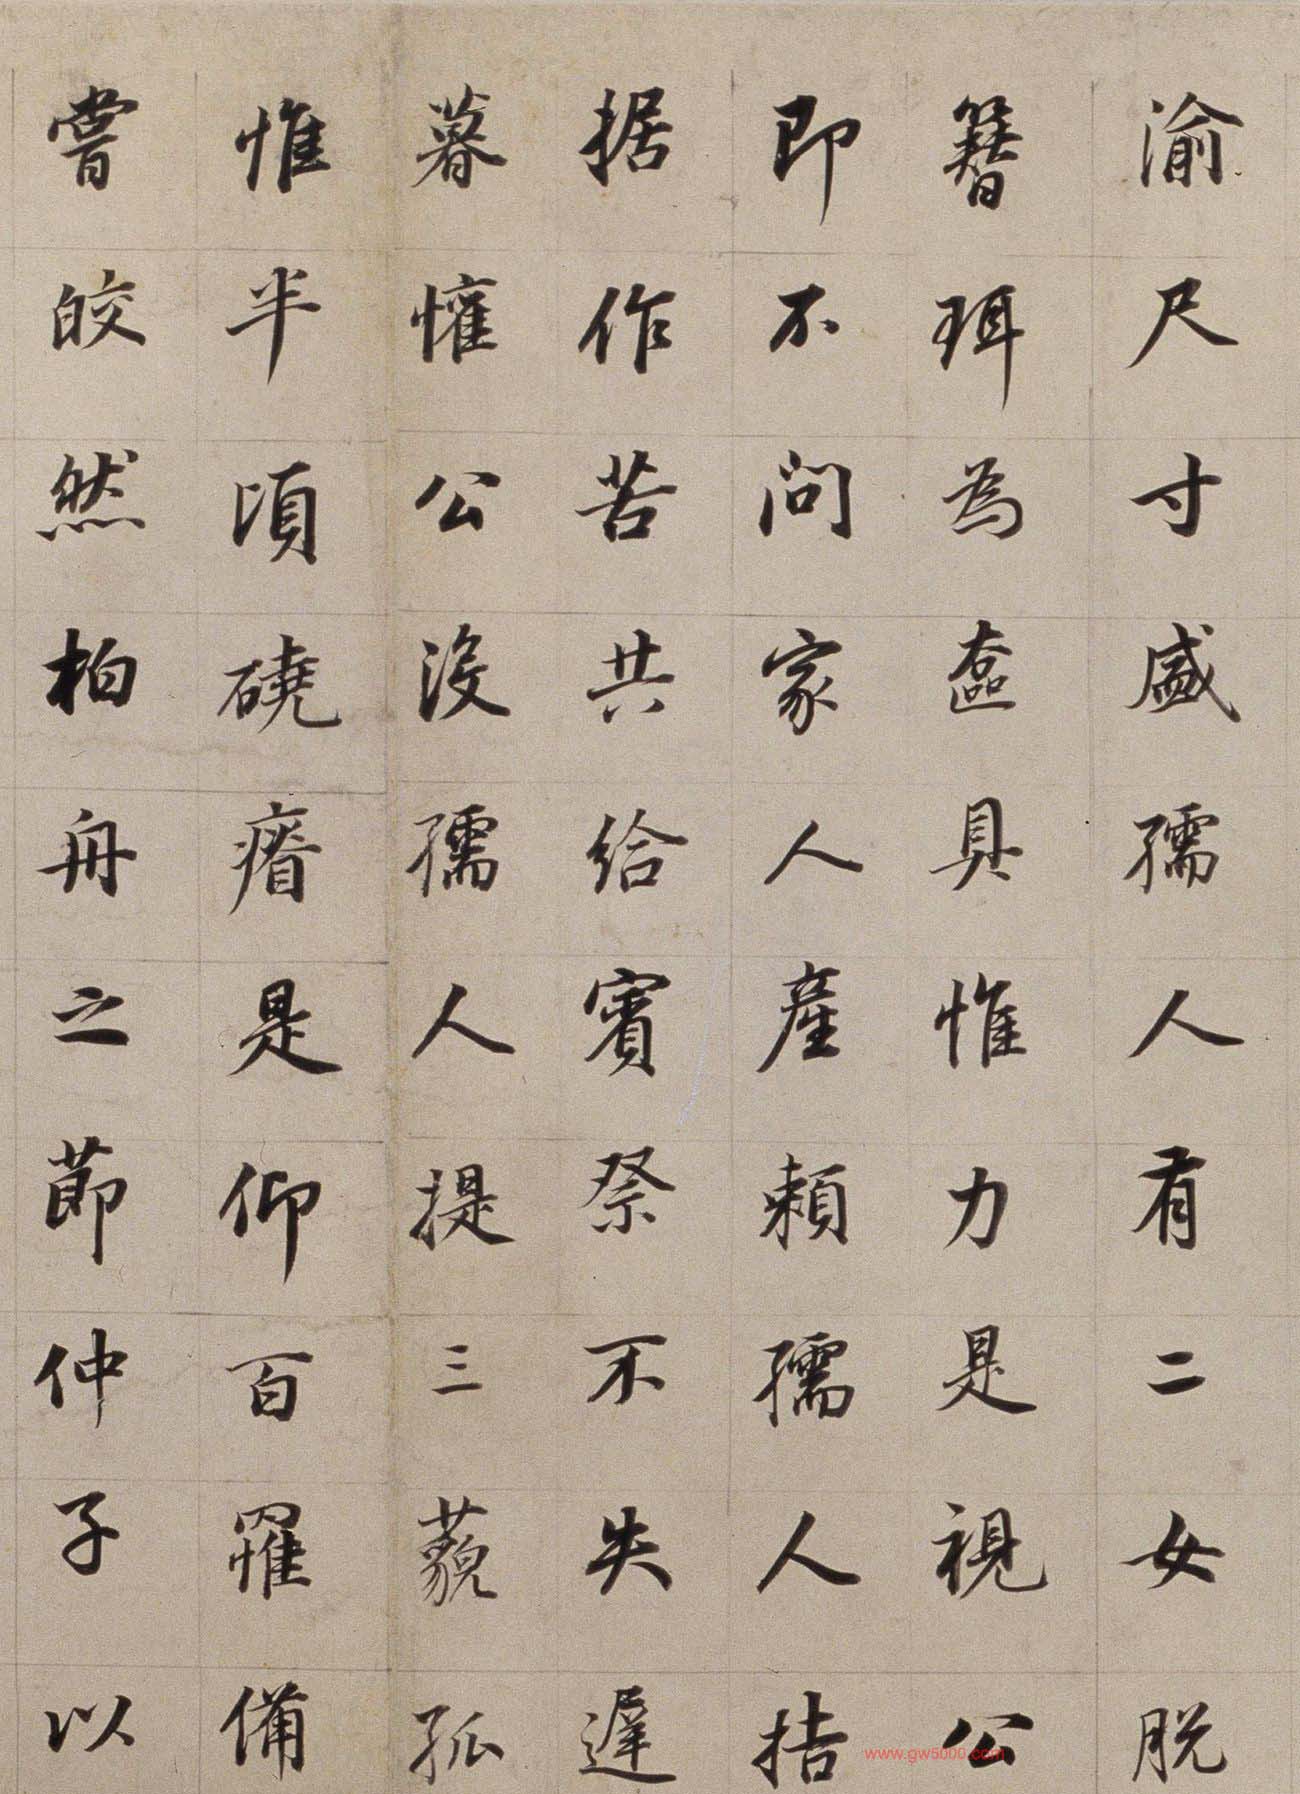 渝尺寸盛孺人有二女脱
簪珥為奩具惟力是視公
即不问家人産賴孺人拮
据作苦共给賓祭不失遲
暮懽公没孺人提三藐孤
惟半頃磽瘠是仰百罹備
嘗皎然柏舟之莭仲子以
www.gw5000.com